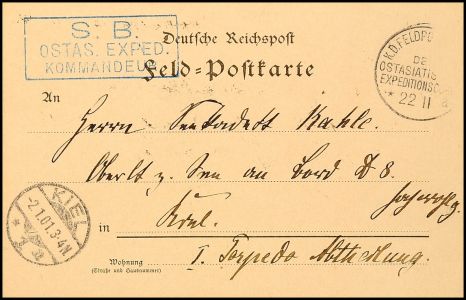 S. B.
OSTAS. EXPED.
KOMMANDEUR
Deutsche Reichspost
Feld-Postkarte
K.D.FELDPO
DE
OSTASIATIS
EXPEDITIONSC
* 22 11 a
An
Herrn Seekadett Kahle.
Oberlt z. See an Bord D 8.
KIEL
-2.1.01.3-4N.
* 1 a
in
Kiel.
Wohnung
(Straße und Hausnummer)
I. Torpedo Abtheilung.